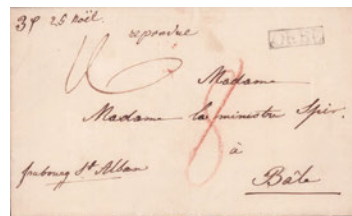 39 25 Noël.
repondue
8
Madame
Madame la ministre Spir.
à
fribourg St Alban
Bâle